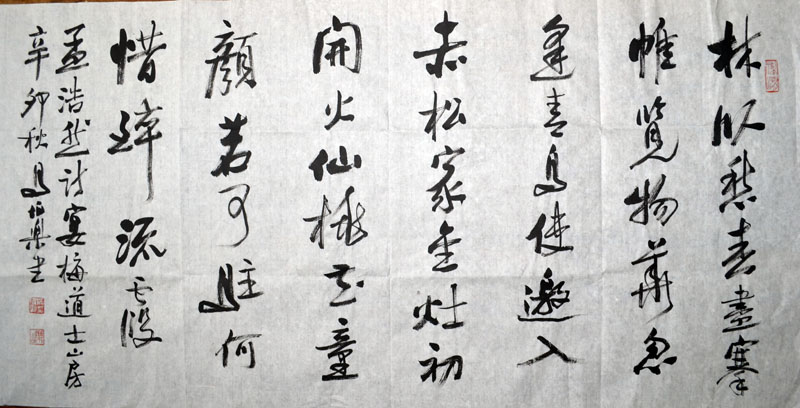 林臥愁春盡搴
帷覽物華忽
逢青鳥使邀入
赤松家金灶初
開火仙桃花童
顏若可駐何
惜醉流霞
孟浩然詩宴梅道士山房
辛卯秋馬樂書